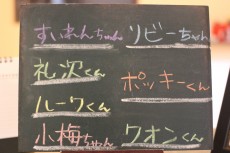 すいれんちゃん
礼次くん
ルークくん
小梅ちゃん
リビーちゃん
ポッキーくん
クオンくん